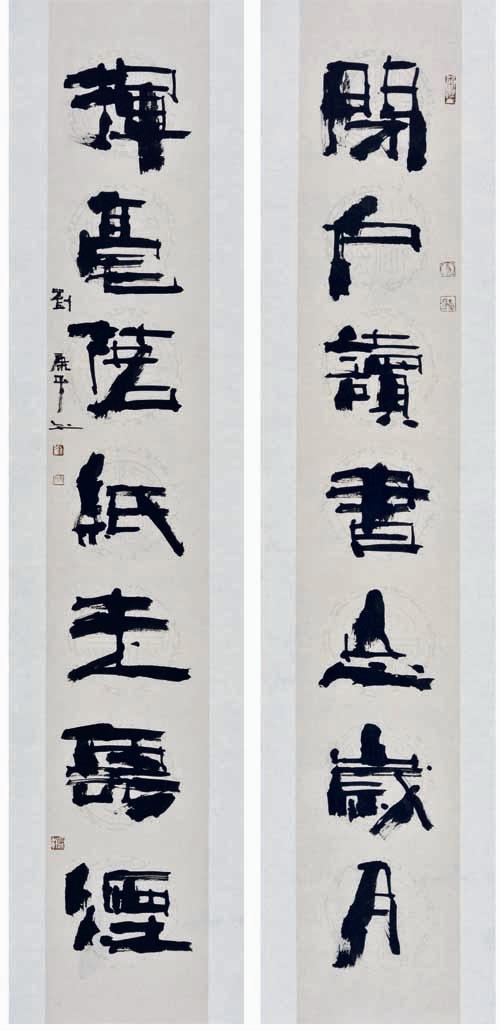 閉户讀書忘歲月
揮毫落紙走雲煙
劉平